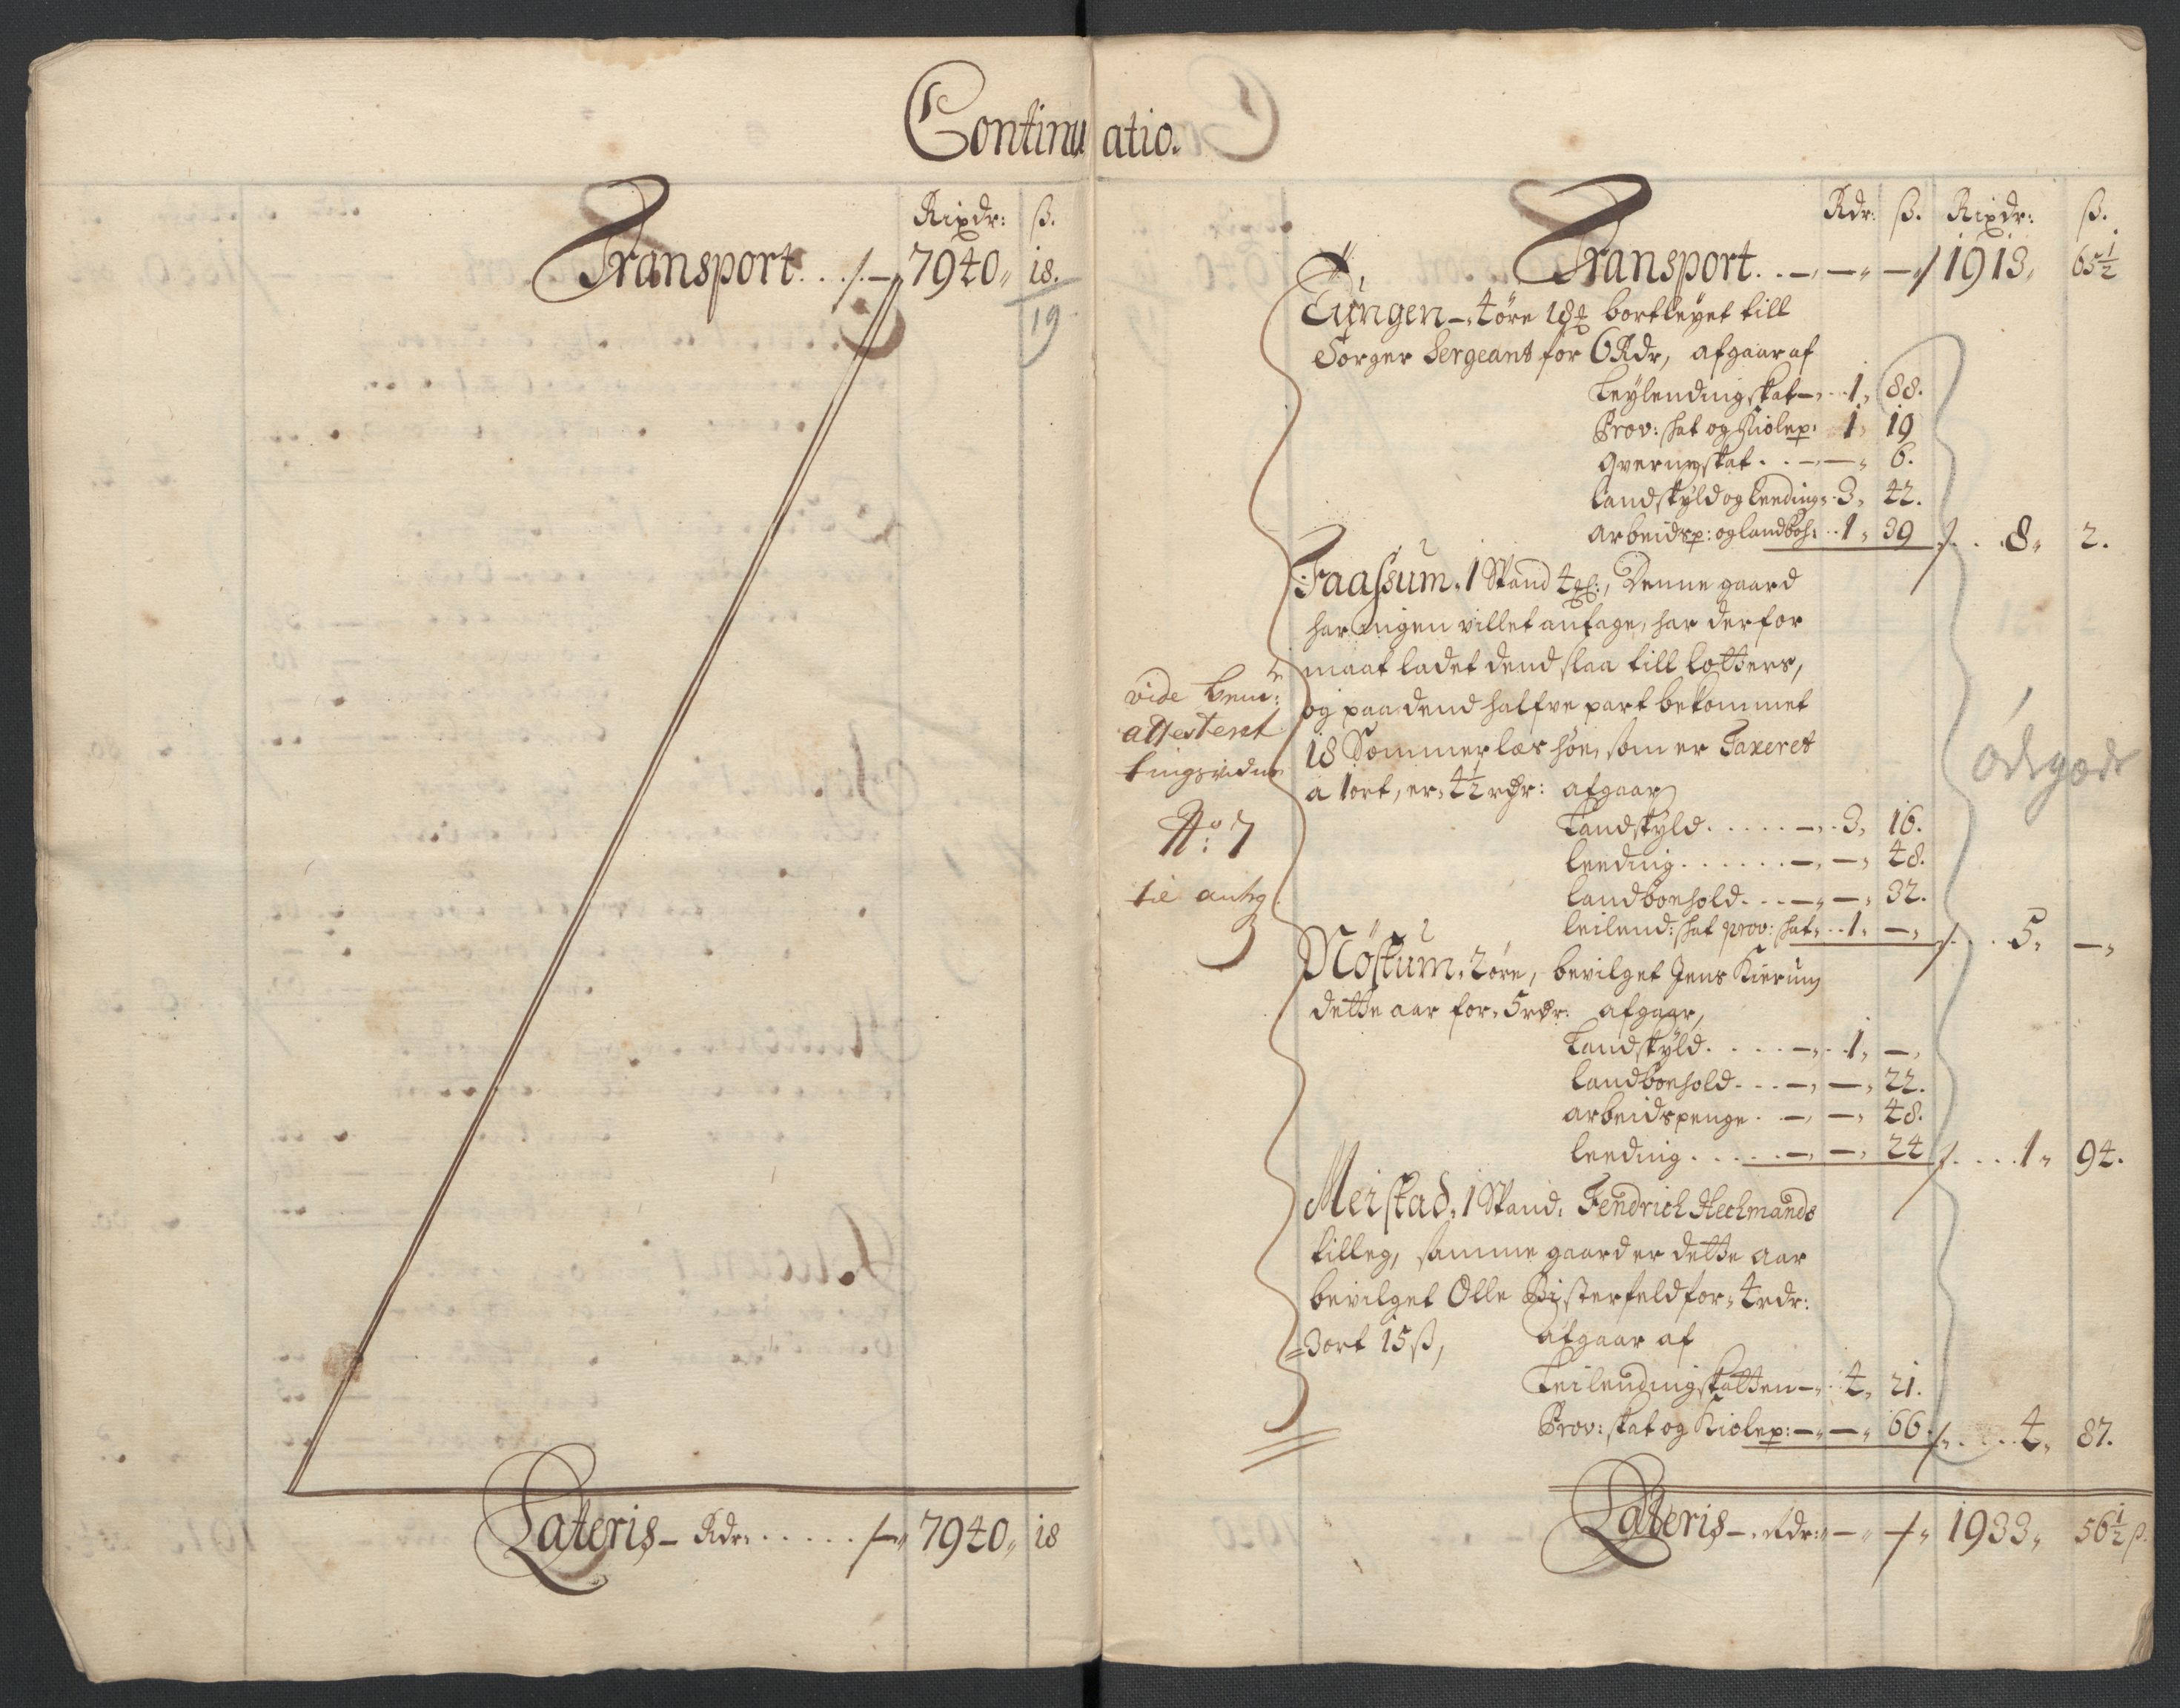 Continuatio.
Rixdr: ß.
Transport . . ./.— 7940„ 18.
19
Lateris — Rdr: . . . . . /.— 7940„ 18
Rdr: ß. Rixdr: ß.
Transport . . — — — / 1913„ 65½
— 4 øre 18 bortleyet till
Sergeant for 6 Rdr, afgaar af
Leylendingskat — . . 1„ 88.
Prov: skat og Kiolep: 1„ 19
skat . . — — „ 6.
Landskyld og Leeding„ . 3„ 42.
Arbeidsp: og landboh: . . 1„ 39 /. . . 8„ 2.
Faassum, 1 Spand 4, Denne gaard
har ingen villet antage, har derfor
maat ladet dend slaa till Lotters,
og paa dend halfve part bekommet
18 Sommerlæs høe, som er Taxeret
a 1 ort, er, 4½ rdr: afgaar
Landskyld . . . . . —, . 3, 16.
Leeding . . . . . . —, — , 48.
Landboehold . . . — „ — , 32.
Leilend: skat prov: skat„ . . 1„ —, /. . . . 5„ —„
vide
attesteret
tingsvidne
No: 7
til antg.
3
ødegods
Nøstum, 2 øre, bevilget Jens Kierum
dette aar for, 5 rdr: afgaar,
Landskyld . . . . —, . . 1, —,
Landboehold . . . —, —, 22.
Arbeidspenge . . —, —, 48.
Leeding . . . . . —, —, 24 /. . . . 1„ 94.
Meistad, 1 Spand, Fendrich Heckmands
tilleg, samme gaard er dette aar
bevilget Olle Bisterfeld for, 4 rdr:
3 ort 15 ß, afgaar af
Leilendingskatten —„ . 4, 21.
Prov: skat og Kiolep: —„ —„ 66. /. . . . . 4„ 87.
Lateris — , Rdr: „ — „ /„ 1933„ 56½ ß.